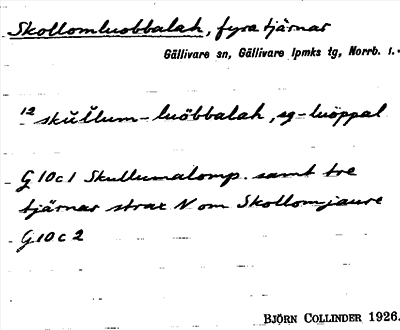 Skollomluobbalah, fyra tjärnar
Gällivare sn, Gällivare lpmks tg, Norrb. l.
12 skŭl̆lum-luöbbalah, sg-luöppal
G10c1 Skullumalomp. samt tre
tjärnar strax N om Skollomjaure
G10c2
BJÖRN COLLINDER 1926.